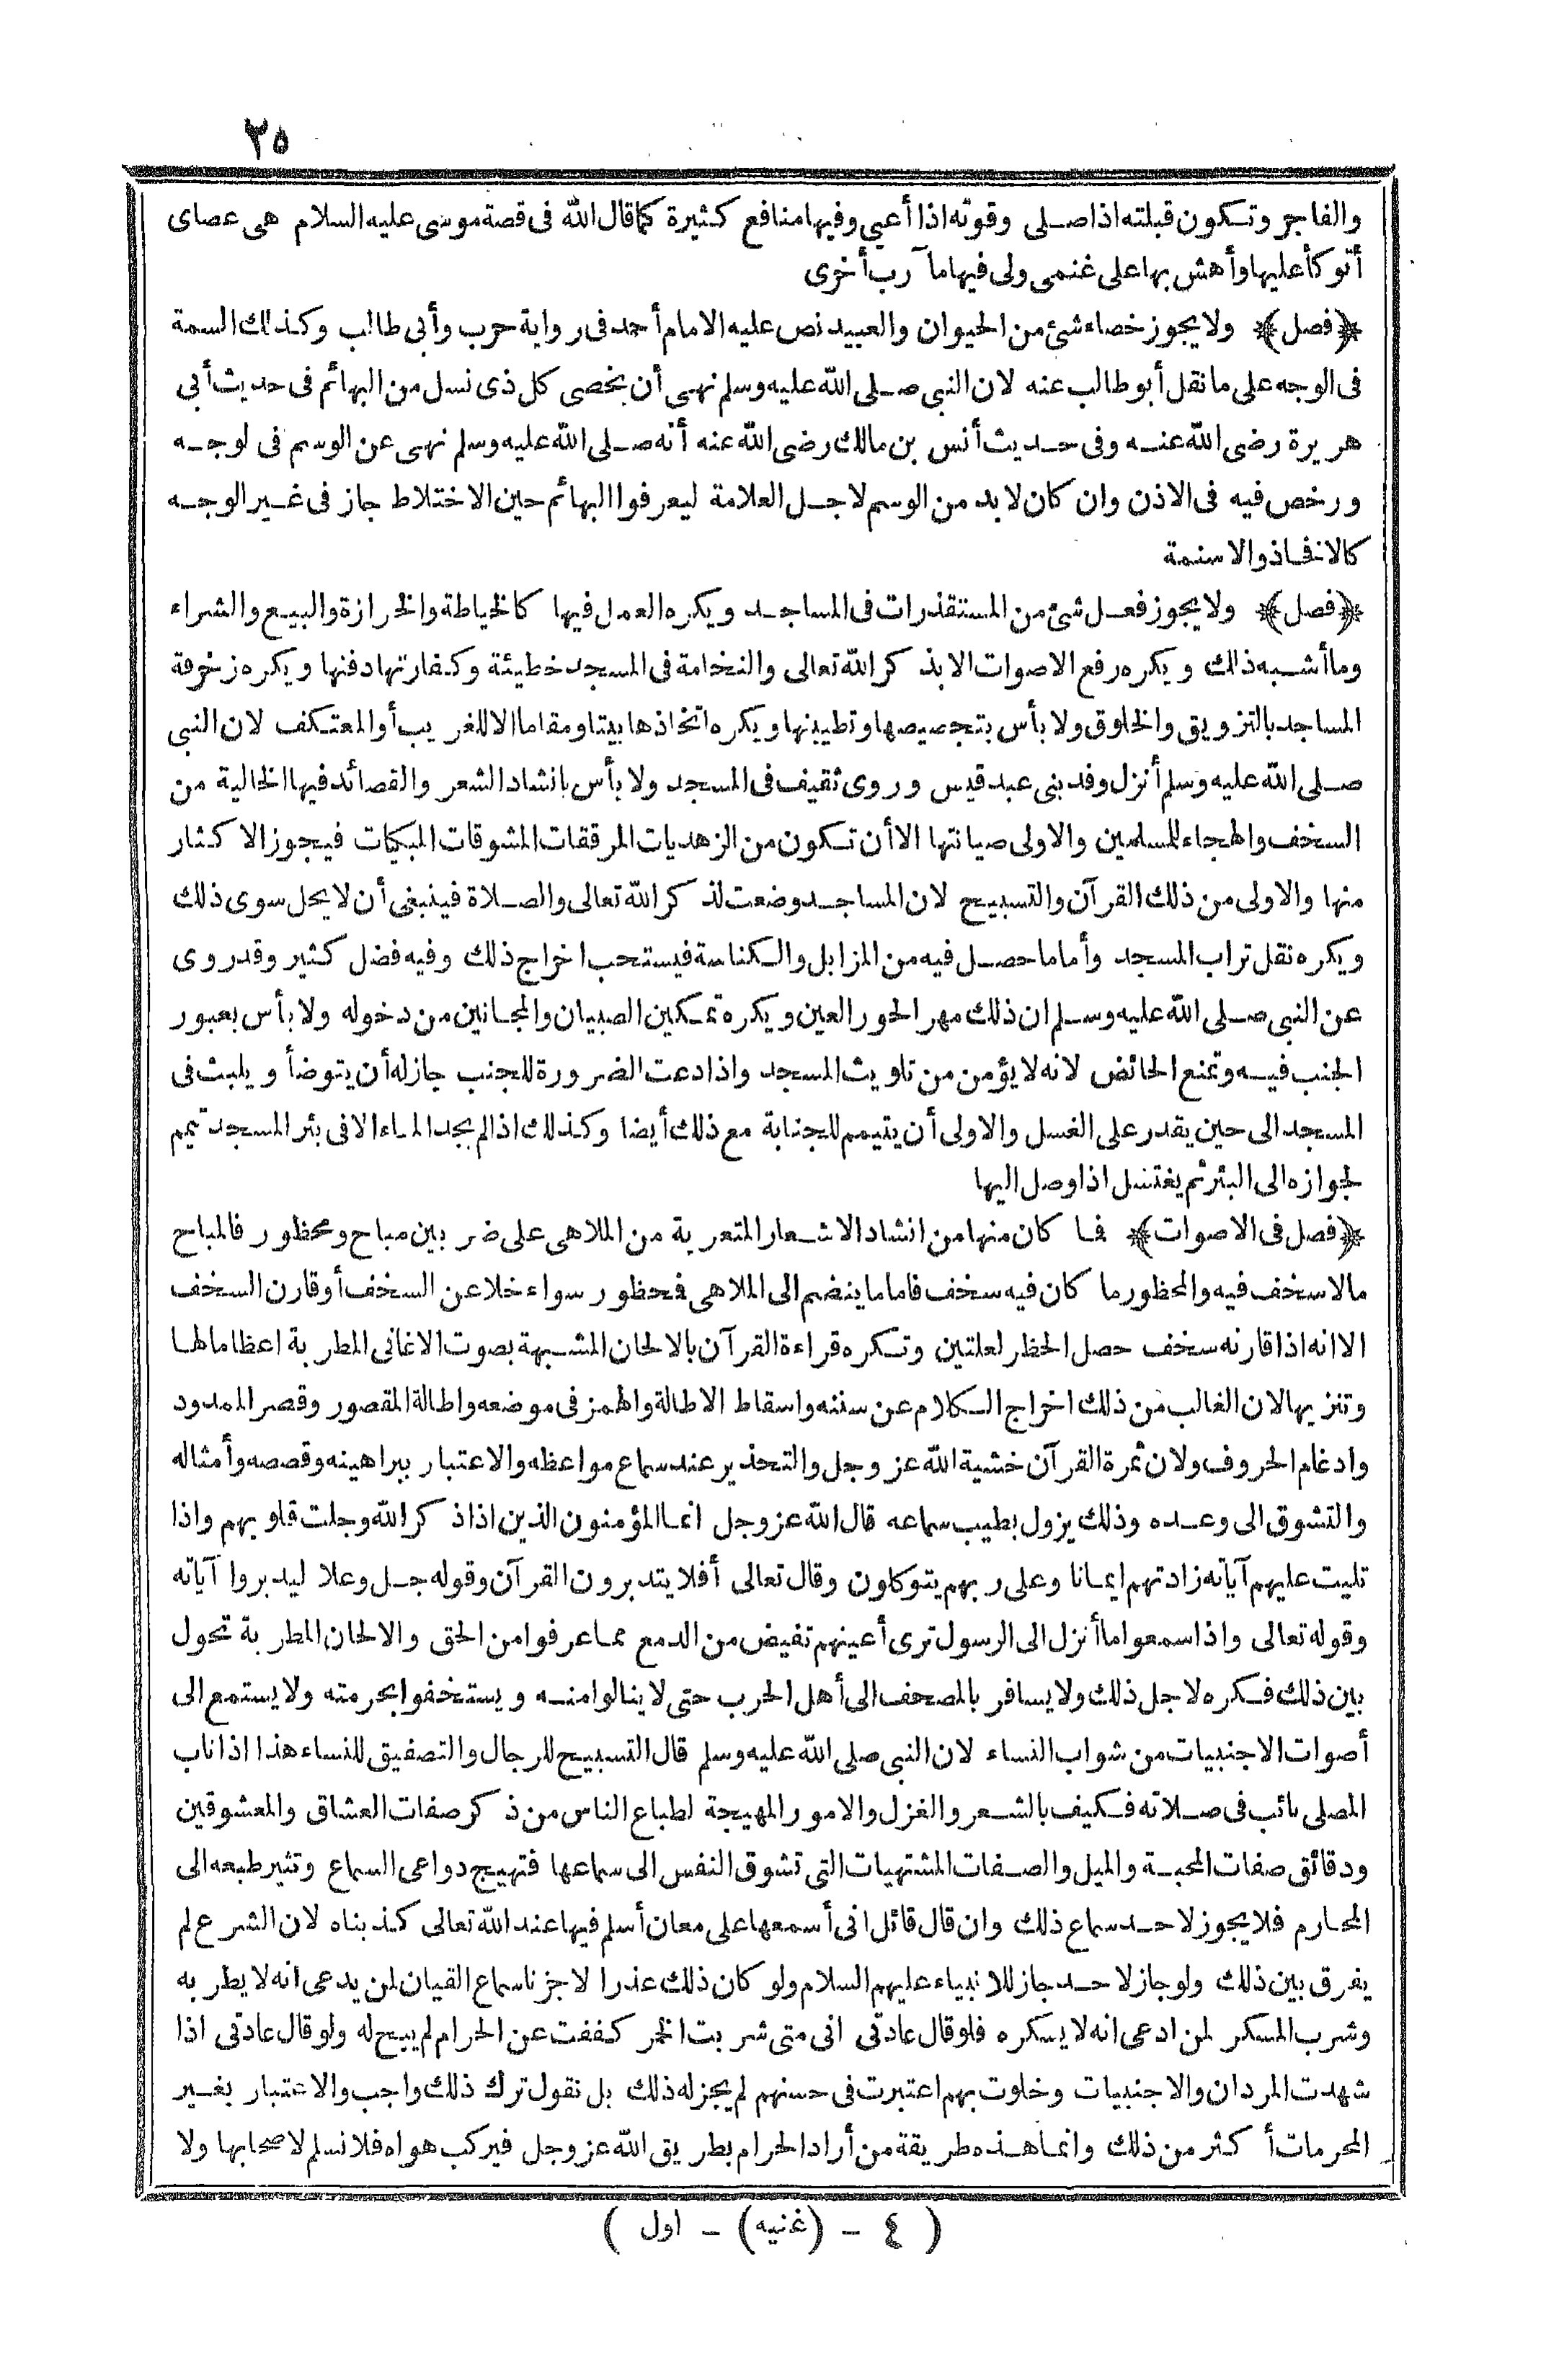 ٢٥
والفاجر وتكون قبلته اذا صلى وقوته اذا أعيى وفيها منافع كثيرة كما قال الله فى قصة موسى عليه السلام هى عصاى
أتوكأ عليها وأهش بها على غنمى ولى فيها مآرب أخرى
﴿فصل﴾ ولا يجوز خصاء شئ من الحيوان والعبيد نص عليه الامام أحمد فى رواية حرب وأبى طالب وكذلك السمة
فى الوجه على ما نقل أبو طالب عنه لان النبى صلى الله عليه وسلم نهى أن يخصى كل ذى نسل من البهائم فى حديث أبى
هريرة رضى الله عنه وفى حديث أنس بن مالك رضى الله عنه أنه صلى الله عليه وسلم نهى عن الوسم فى لوجه
ورخص فيه فى الاذن وان كان لا بد من الوسم لاجل العلامة ليعرفوا البهائم حين الاختلاط جاز فى غير الوجه
كالافخاذ والاسنمة
﴿فصل﴾ ولا يجوز فعل شئ من المستقذرات فى المساجد ويكره العمل فيها كالخياطة والخرازة والبيع والشراء
وما أشبه ذلك ويكره رفع الاصوات الا بذكر الله تعالى والنخامة فى المسجد خطيئة وكفارتها دفنها ويكره زخرفة
المساجد بالتزويق والخلوق ولا بأس بتجصيصها وتطيينها ويكره اتخاذها بيتا ومقاما الا للغريب أو المعتكف لان النبى
صلى الله عليه وسلم أنزل وفد بنى عبد قيس وروى ثقيف فى المسجد ولا بأس بانشاد الشعر والقصائد فيها الخالية من
السخف والهجاء للمسلمين والاولى صيانتها الا أن تكون من الزهديات المرققات المشوقات المبكيات فيجوز الاكثار
منها والاولى من ذلك القرآن والتسبيح لان المساجد وضعت لذكر الله تعالى والصلاة فينبغى أن لا يحل سوى ذلك
ويكره نقل تراب المسجد وأما ما حصل فيه من المزابل والكناسة فيستحب اخراج ذلك وفيه فضل كثير وقد روى
عن النبى صلى الله عليه وسلم ان ذلك مهر الحور العين ويكره تمكين الصبيان والمجانين من دخوله ولا بأس بعبور
الجنب فيه وتمنع الحائض لانه لا يؤمن من تلويث المسجد واذا دعت الضرورة للجنب جاز له أن يتوضأ ويلبث فى
المسجد الى حين يقدر على الغسل والاولى أن يتيمم للجنابة مع ذلك أيضا وكذلك اذا لم يجد الماء الا فى بئر المسجد تيمم
لجوازه الى البئر ثم يغتسل اذا وصل اليها
﴿فصل فى الاصوات﴾ فما كان منها من انشاد الاشعار المتعرية من الملاهى على ضربين مباح ومحظور فالمباح
مالا سخف فيه والمحظور ما كان فيه سخف فاما ما ينضم الى الملاهى فمحظور سواء خلا عن السخف أو قارن السخف
الا انه اذا قارنه سخف حصل الحظر لعلتين وتكره قراءة القرآن بالالحان المشبهة بصوت الاغانى المطربة اعظاما لها
وتنزيها لان الغالب من ذلك اخراج الكلام عن سننه واسقاط الاطالة والهمز فى موضعه واطالة المقصور وقصر الممدود
وادغام الحروف ولان ثمرة القرآن خشية الله عز وجل والتحذير عند سماع مواعظه والاعتبار ببراهينه وقصصه وأمثاله
والتشوق الى وعده وذلك يزول بطيب سماعه قال الله عز وجل انما المؤمنون الذين اذا ذكر الله وجلت قلوبهم واذا
تليت عليهم آياته زادتهم ايمانا وعلى ربهم يتوكلون وقال تعالى أفلا يتدبرون القرآن وقوله جل وعلا ليدبروا آياته
وقوله تعالى واذا سمعوا ما أنزل الى الرسول ترى أعينهم تفيض من الدمع مما عرفوا من الحق والالحان المطربة تحول
بين ذلك فكره لاجل ذلك ولا يسافر بالمصحف الى أهل الحرب حتى لا ينالوا منه ويستخفوا بحرمته ولا يستمع الى
أصوات الاجنبيات من شواب النساء لان النبى صلى الله عليه وسلم قال التسبيح للرجال والتصفيق للنساء هذا اذا ناب
المصلى نائب فى صلاته فكيف بالشعر والغزل والامور المهيجة لطباع الناس من ذكر صفات العشاق والمعشوقين
ودقائق صفات المحبة والميل والصفات المشتهيات التى تشوق النفس الى سماعها فتهيج دواعى السماع وتثير طبعه الى
المحارم فلا يجوز لاحد سماع ذلك وان قال قائل انى أسمعها على معان أسلم فيها عند الله تعالى كذبناه لان الشرع لم
يفرق بين ذلك ولو جاز لاحد جاز للانبياء عليهم السلام ولو كان ذلك عذرا لاجزنا سماع القيان لمن يدعى انه لا يطربه
وشرب المسكر لمن ادعى انه لا يسكره فلو قال عادتى انى متى شربت الخمر كففت عن الحرام لم يبح له ولو قال عادتى اذا
شهدت المردان والاجنبيات وخلوت بهم اعتبرت فى حسنهم لم يجز له ذلك بل نقول ترك ذلك واجب والاعتبار بغير
المحرمات أكثر من ذلك وانما هذه طريقة من أراد الحرام بطريق الله عز وجل فيركب هواه فلا نسلم لاصحابها ولا
( ٤ - (غنيه) - اول )